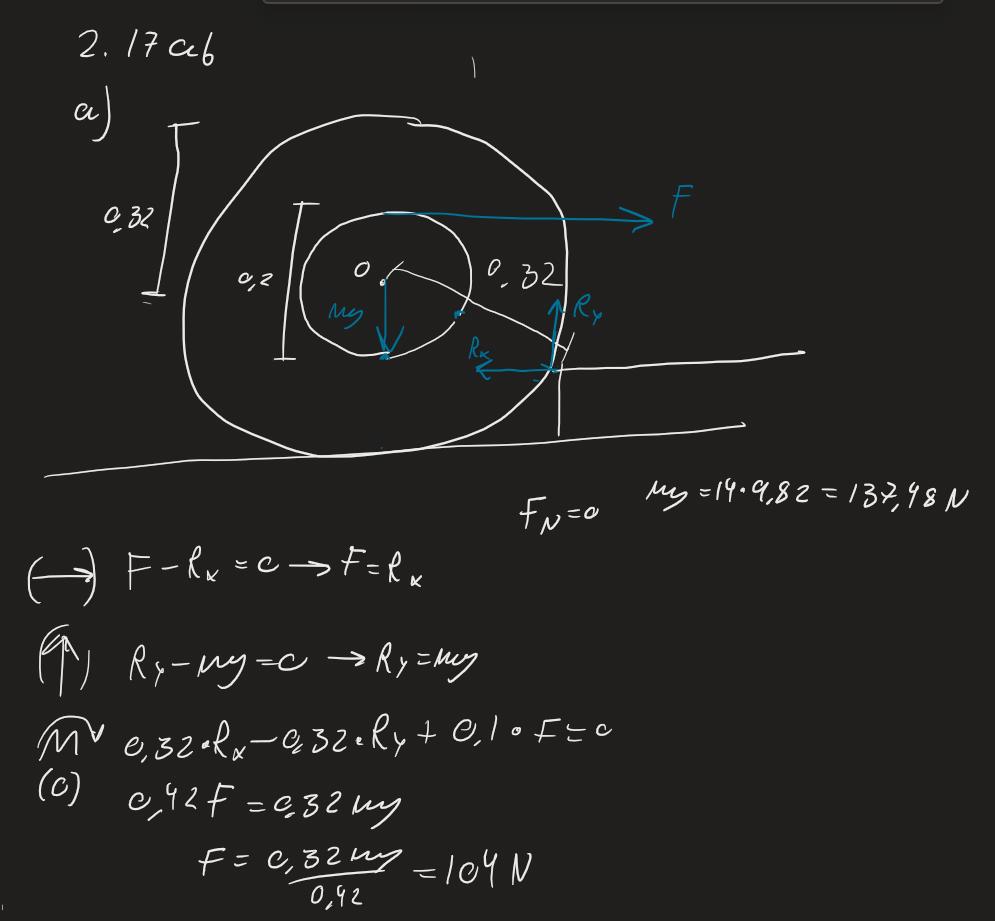 2. 17 ab
a)
0,32
F
0,2
0
0.32
mg
Ry
Rx
FN=0
mg = 14·9,82 = 137,48 N
(→) F - Rx = 0 → F = Rx
(↑) Ry - mg = 0 → Ry = mg
M 0,32·Rx - 0,32·Ry + 0,1·F = 0
(0)
0,42 F = 0,32 mg
F = 0,32 mg / 0,42 = 104 N